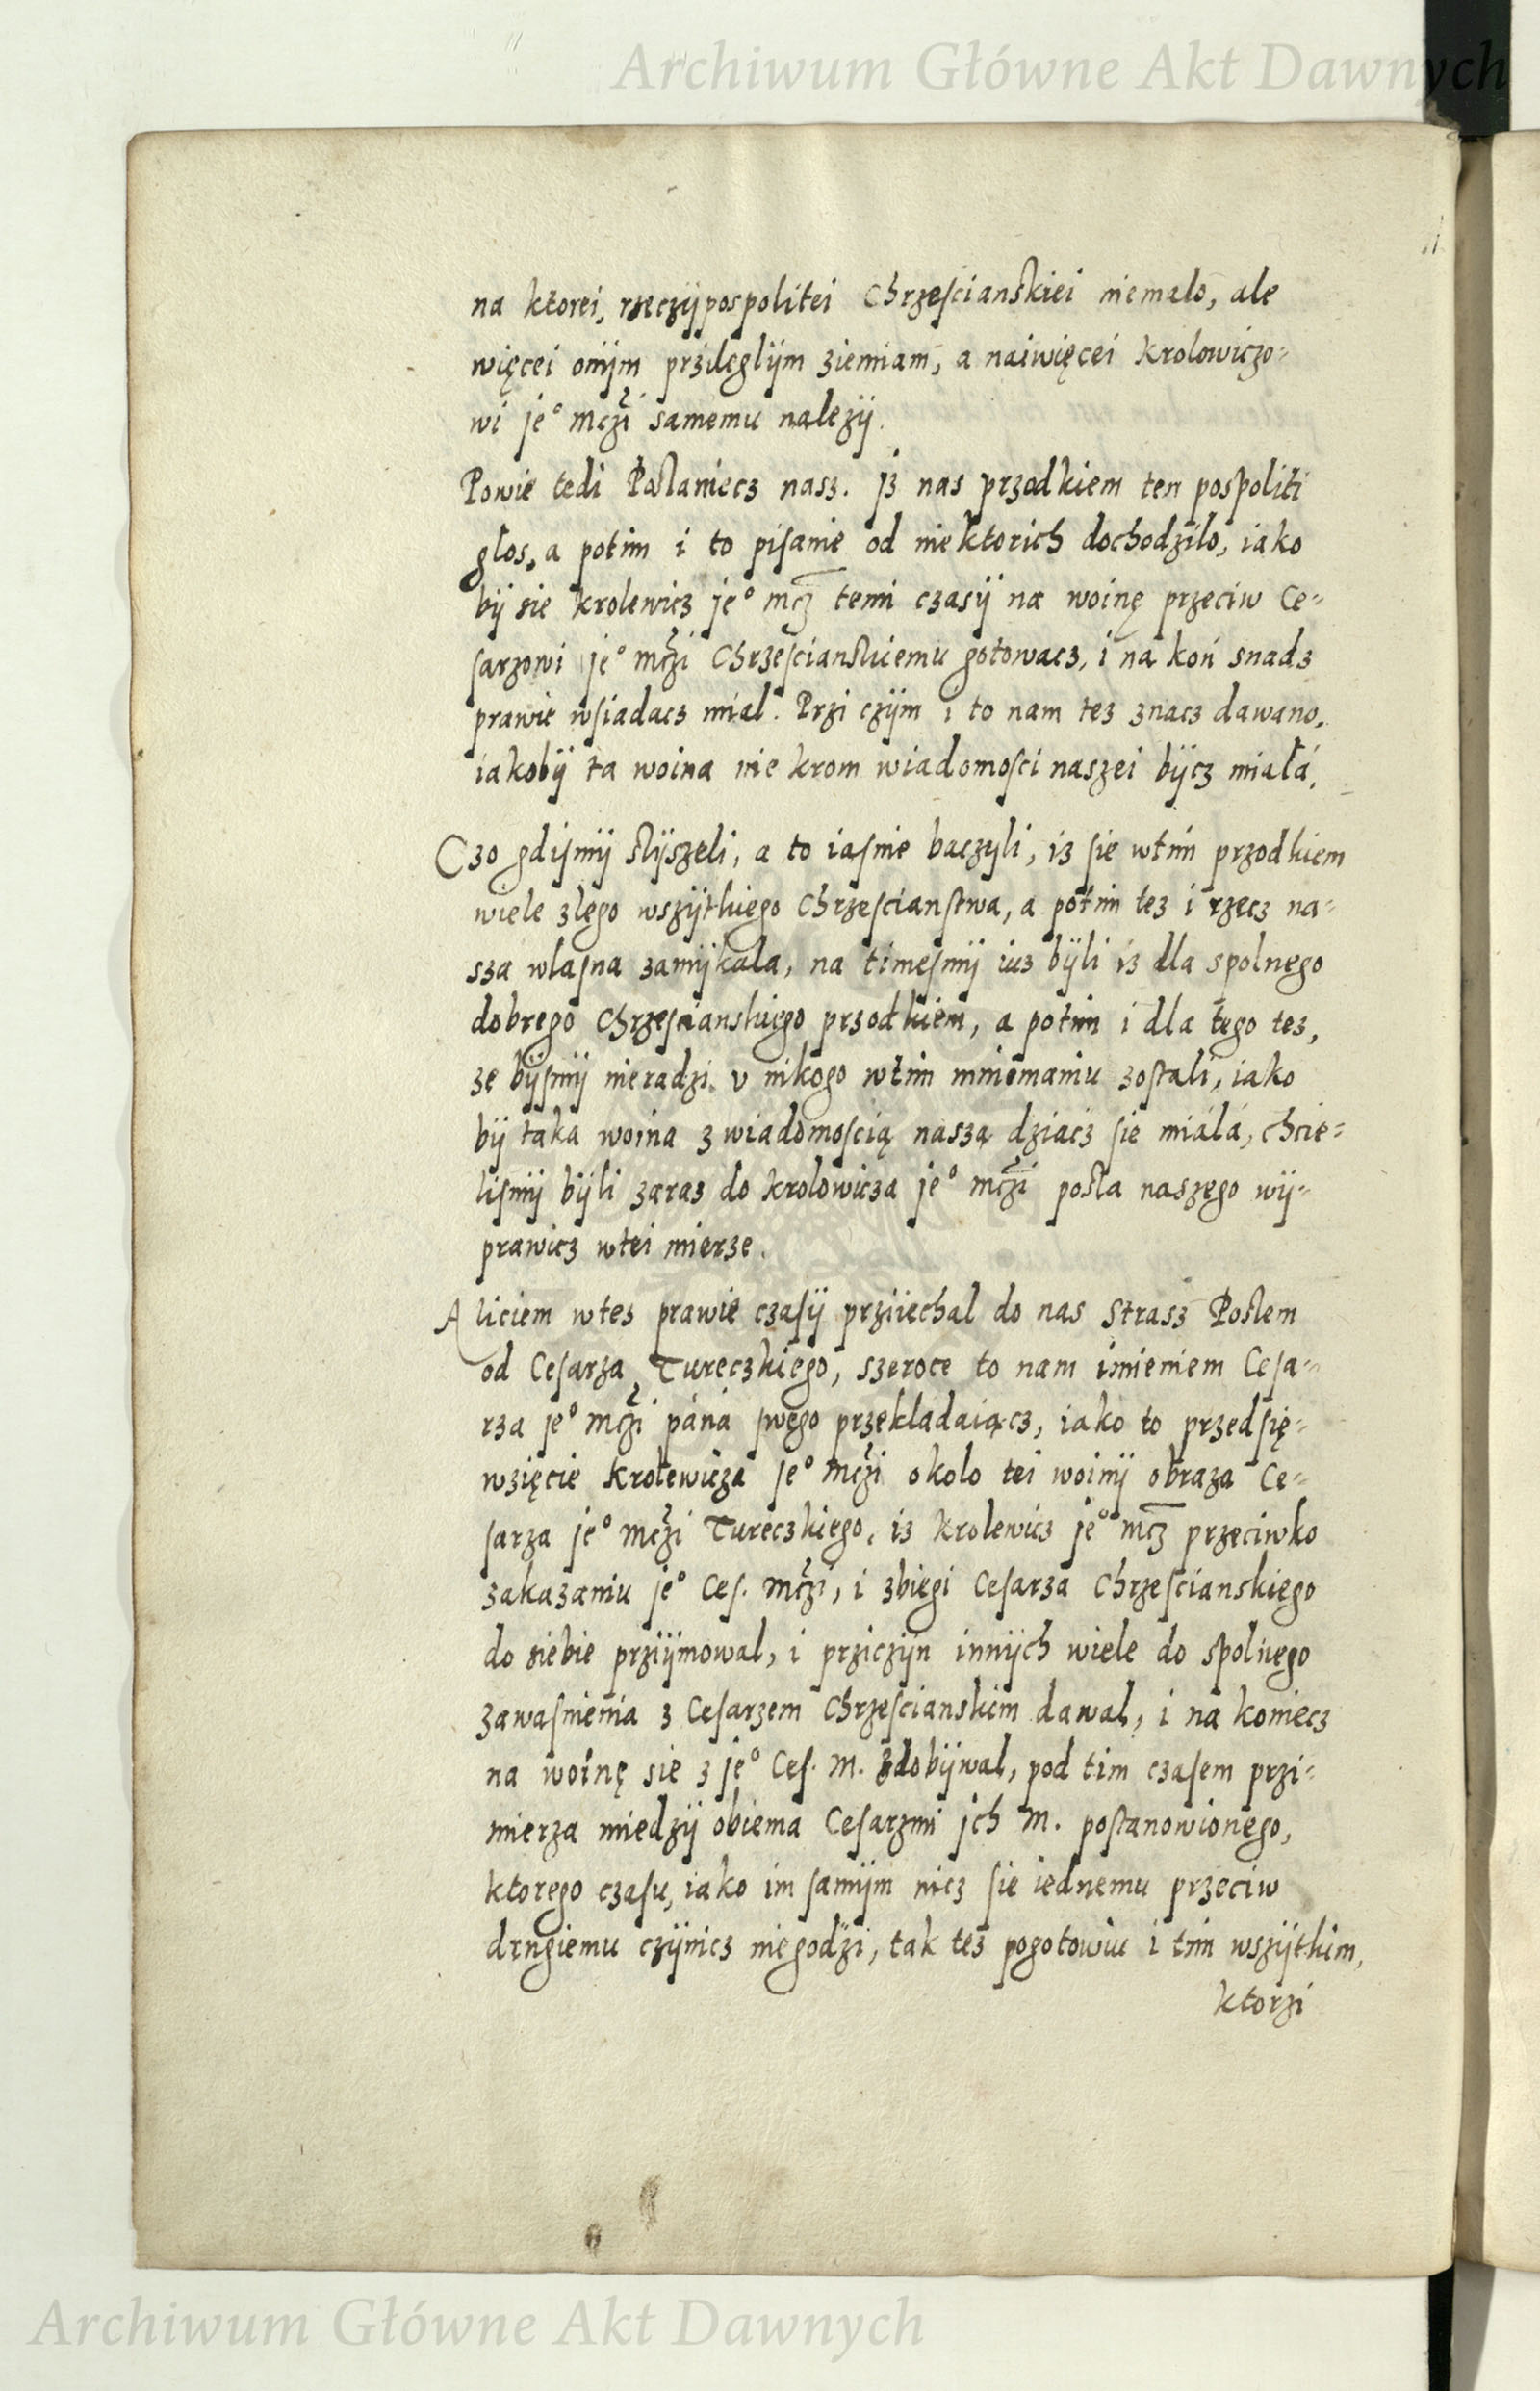 Archiwum Główne Akt Dawnych
na ktorei, rzeczÿpospolitei Chrzescianskiei niemalo, ale
więcei onÿm przileglÿm ziemiam, a naiwięcei krolowiczo=
wi je° mczi samemu nalezÿ.
Powie tedi Poslaniecz nasz. Jz nas przodkiem ten pospoliti
glos, a potim i to pisanie od niektorich dochodzilo, iako
bÿ sie krolewicz je° mcz temi czasÿ na woinę przeciw Ce=
sarzowi je° mczi Chrzescianskiemu gotowacz, i na koń snadz
prawie wsiadacz mial. Przi czÿm i to nam tez znacz dawano,
iakobÿ ta woina nie krom wiadomosci naszei bÿcz miala,
Czo gdismÿ slÿszeli, a to iasnie baczÿli, iz sie wtim przodkiem
wiele zlego wszÿtkiego Chrzescianstwa, a potim tez i rzecz na=
sza wlasna zamÿkala, na timesmÿ iuz bÿli iz dla spolnego
dobrego Chrzescianskiego przodkiem, a potim i dla tego tez,
ze bÿsmÿ nieradzi v nikogo wtim mniemaniu zostali, iako
bÿ taka woina z wiadomoscią naszą dziacz sie miala, chcie=
lismÿ bÿli zaraz do krolowicza je° mczi posla naszego wÿ=
prawicz wtei mierze.
Aliciem wtez prawie czasÿ prziiechal do nas Strasz Poslem
od Cesarza Tureczkiego, szeroce to nam imieniem Cesa=
rza je° mczi pána swego przekladaiącz, iako to przedsię=
wzięcie krolewicza je° mczi okolo tei woinÿ obraza Ce=
sarza je° mczi Tureczkiego, iz krolewicz je° mcz przeciwko
zakazaniu je° Ces. mczi, i zbiegi Cesarza Chrzescianskiego
do siebie prziÿmowal, i przicziÿn innÿch wiele do spolnego
zawasnienia z Cesarzem Chrzescianskim dawal, i na koniecz
na woinę sie z je° Ces. M. zdobÿwal, pod tim czasem przi=
mierza miedzÿ obiema Cesarzmi jch M. postanowionego,
ktorego czasu, iako im samÿm nicz sie iednemu przeciw
drugiemu czÿnicz niegodzi, tak tez pogotowiu i tim wszÿtkim,
ktorzi
Archiwum Główne Akt Dawnych